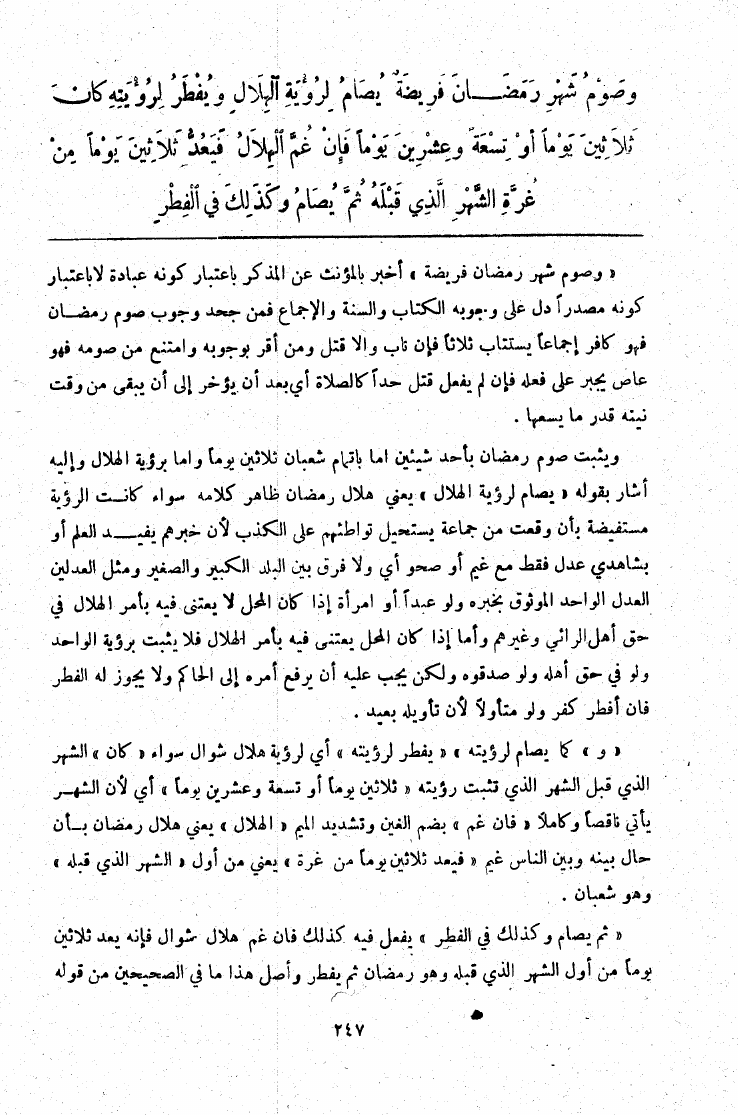 وَصَوْمُ شَهْرِ رَمَضَانَ فَرِيضَةٌ يُصَامُ لِرُؤْيَةِ ٱلْهِلَالِ وَيُفْطَرُ لِرُؤْيَتِهِ كَانَ
ثَلَاثِينَ يَوْماً أَوْ تِسْعَةً وعِشْرِينَ يَوْماً فَإِنْ غُمَّ ٱلْهِلَالُ فَيَعُدُّ ثَلَاثِينَ يَوْماً مِنْ
غُرَّةِ الشَّهْرِ الَّذِي قَبْلَهُ ثُمَّ يُصَامُ وَكَذَلِكَ فِي ٱلْفِطْرِ
« وصوم شهر رمضان فريضة » أخبر بالمؤنث عن المذكر باعتبار كونه عبادة لاباعتبار
كونه مصدراً دل على وجوبه الكتاب والسنة والإجماع فمن جحد وجوب صوم رمضان
فهو كافر إجماعاً يستتاب ثلاثاً فإن تاب والا قتل ومن أقر بوجوبه وامتنع من صومه فهو
عاص يجبر على فعله فإن لم يفعل قتل حداً كالصلاة أي بعد أن يؤخر إلى أن يبقى من وقت
نيته قدر ما يسعها .
ويثبت صوم رمضان بأحد شيئين اما باتمام شعبان ثلاثين يوماً واما برؤية الهلال وإليه
أشار بقوله « يصام لرؤية الهلال » يعني هلال رمضان ظاهر كلامه سواء كانت الرؤية
مستفيضة بأن وقعت من جماعة يستحيل تواطئهم على الكذب لأن خبرهم يفيد العلم أو
بشاهدي عدل فقط مع غيم أو صحو أي ولا فرق بين البلد الكبير والصغير ومثل العدلين
العدل الواحد الموثوق بخبره ولو عبداً أو امرأة إذا كان المحل لا يعتنى فيه بأمر الهلال في
حق أهل الرائي وغيرهم وأما إذا كان المحل يعتنى فيه بأمر الهلال فلا يثبت برؤية الواحد
ولو في حق أهله ولو صدقوه ولكن يجب عليه أن يرفع أمره إلى الحاكم ولا يجوز له الفطر
فان أفطر كفر ولو متأولاً لأن تأويله بعيد .
« و » كما يصام لرؤيته » « يفطر لرؤيته » أي لرؤية هلال شوال سواء « كان » الشهر
الذي قبل الشهر الذي تثبت رؤيته « ثلاثين يوماً أو تسعة وعشرين يوماً » أي لأن الشهر
يأتي ناقصاً وكاملاً « فان غم » بضم الغين وتشديد الميم « الهلال » يعني هلال رمضان بأن
حال بينه وبين الناس غيم « فيعد ثلاثين يوماً من غرة » يعني من أول « الشهر الذي قبله »
وهو شعبان .
« ثم يصام وكذلك في الفطر » يفعل فيه كذلك فان غم هلال شوال فإنه يعد ثلاثين
يوماً من أول الشهر الذي قبله وهو رمضان ثم يفطر وأصل هذا ما في الصحيحين من قوله
٢٤٧